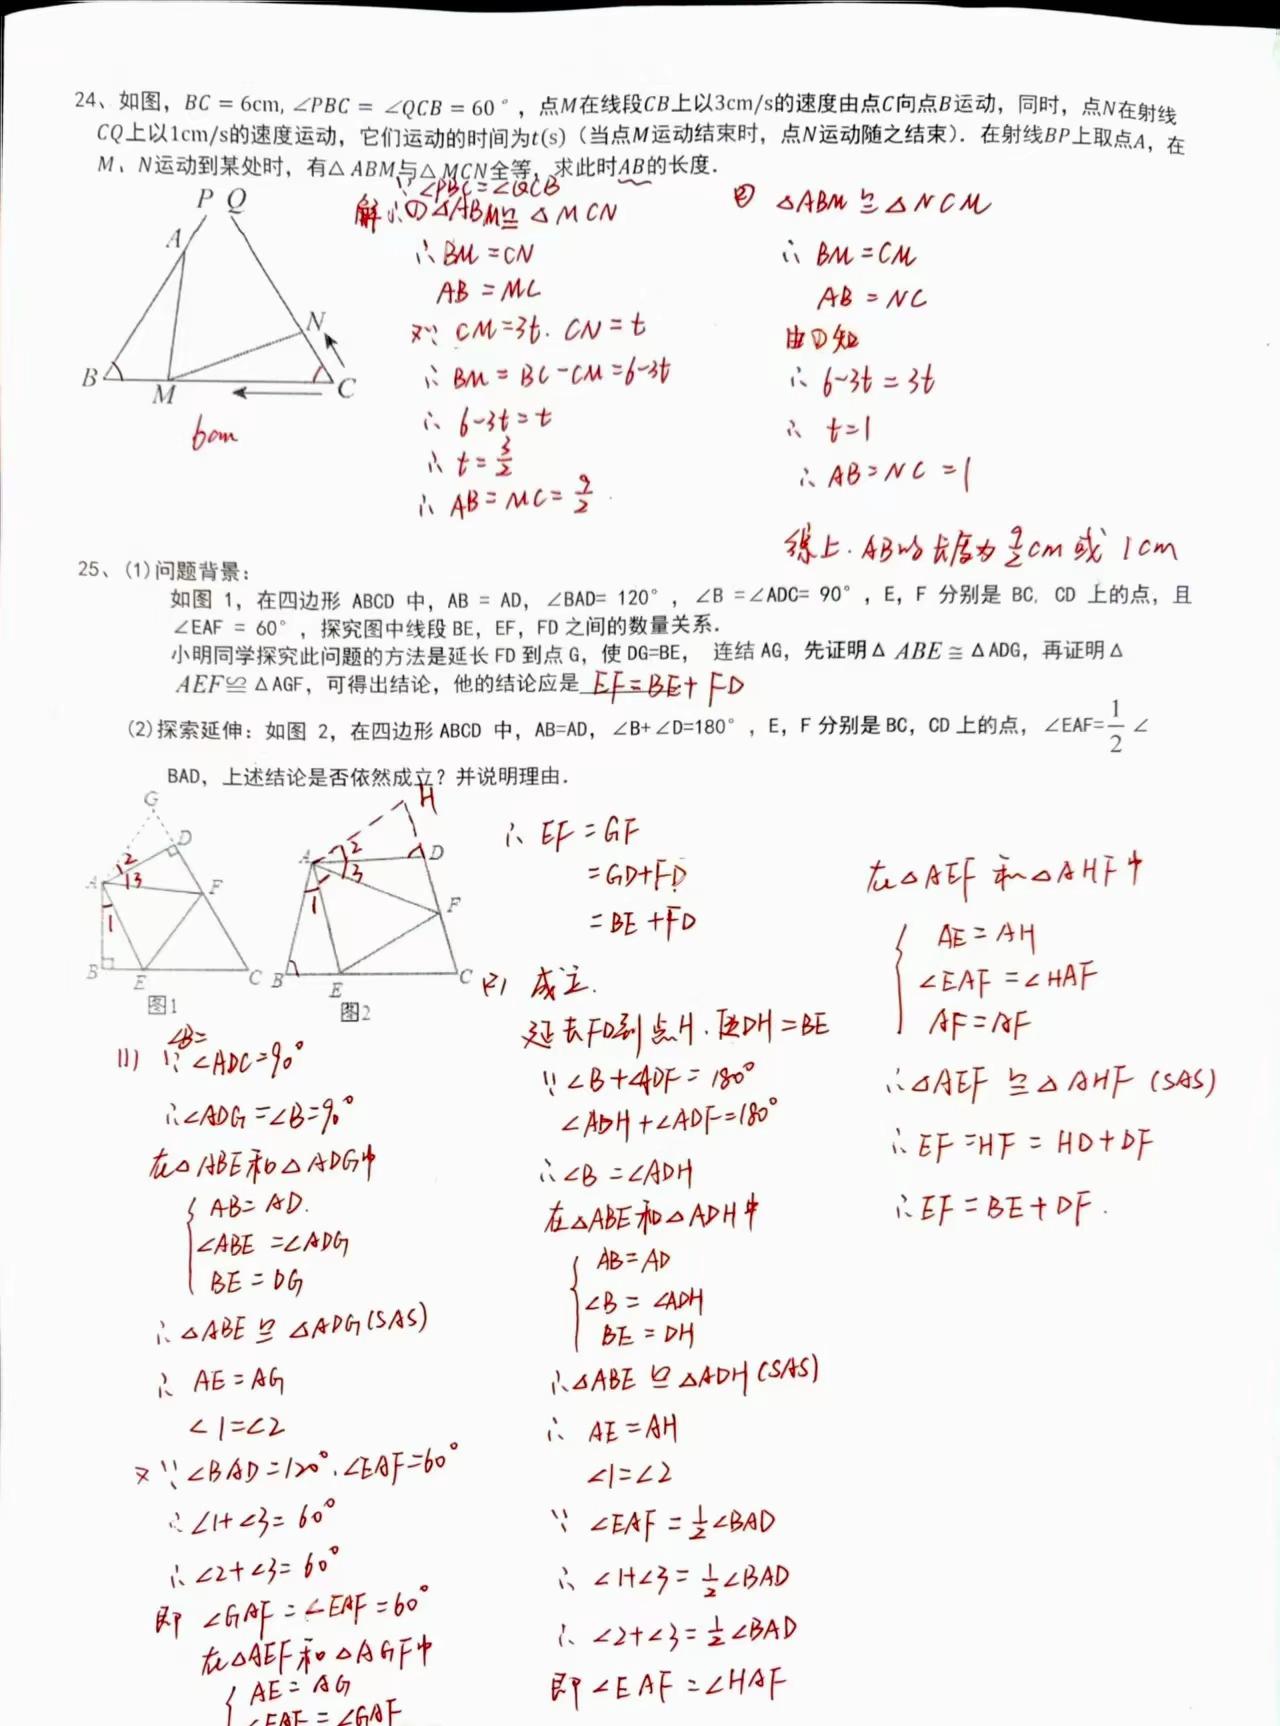 24、如图，BC = 6cm, ∠PBC = ∠QCB = 60°，点M在线段CB上以3cm/s的速度由点C向点B运动，同时，点N在射线
CQ上以1cm/s的速度运动，它们运动的时间为t(s)（当点M运动结束时，点N运动随之结束）．在射线BP上取点A，在
M、N运动到某处时，有△ABM与△MCN全等，求此时AB的长度．
P Q
A
N
B
M
C
6cm
∵∠PBC=∠QCB
解∴①△ABM≌△MCN
∴BM=CN
AB=MC
又∵CM=3t. CN=t
∴BM=BC-CM=6-3t
∴6-3t=t
∴t=3/2
∴AB=MC=9/2
② △ABM≌△NCM
∴BM=CM
AB=NC
由①知
∴6-3t=3t
∴t=1
∴AB=NC=1
综上.AB的长度为9/2cm或1cm
25、(1)问题背景：
如图 1，在四边形 ABCD 中，AB = AD，∠BAD= 120°，∠B =∠ADC= 90°，E，F 分别是 BC，CD 上的点，且
∠EAF = 60°，探究图中线段 BE，EF，FD 之间的数量关系．
小明同学探究此问题的方法是延长 FD 到点 G，使 DG=BE， 连结 AG，先证明△ABE≌△ADG，再证明△
AEF≌△AGF，可得出结论，他的结论应是 EF=BE+FD
(2)探索延伸：如图 2，在四边形 ABCD 中，AB=AD，∠B+∠D=180°，E，F 分别是 BC，CD 上的点，∠EAF=1/2∠
BAD，上述结论是否依然成立？并说明理由．
G
D
2
A
3
F
1
B
E
C
图1
H
A
2
D
3
1
F
B
E
C
图2
∠B=
(1) ∵∠ADC=90°
∴∠ADG=∠B=90°
在△ABE和△ADG中
AB=AD.
∠ABE=∠ADG
BE=DG
∴△ABE≌△ADG(SAS)
∴AE=AG
∠1=∠2
又∵∠BAD=120°.∠EAF=60°
∴∠1+∠3=60°
∴∠2+∠3=60°
即 ∠GAF=∠EAF=60°
在△AEF和△AGF中
AE=AG
∠EAF=∠GAF
∴EF=GF
=GD+FD
=BE+FD
(2) 成立.
延长FD到点H.使DH=BE
∵∠B+∠ADF=180°
∠ADH+∠ADF=180°
∴∠B=∠ADH
在△ABE和△ADH中
AB=AD
∠B=∠ADH
BE=DH
∴△ABE≌△ADH(SAS)
∴AE=AH
∠1=∠2
∵∠EAF=1/2∠BAD
∴∠1+∠3=1/2∠BAD
∴∠2+∠3=1/2∠BAD
即∠EAF=∠HAF
在△AEF和△AHF中
AE=AH
∠EAF=∠HAF
AF=AF
∴△AEF≌△AHF(SAS)
∴EF=HF=HD+DF
∴EF=BE+DF.